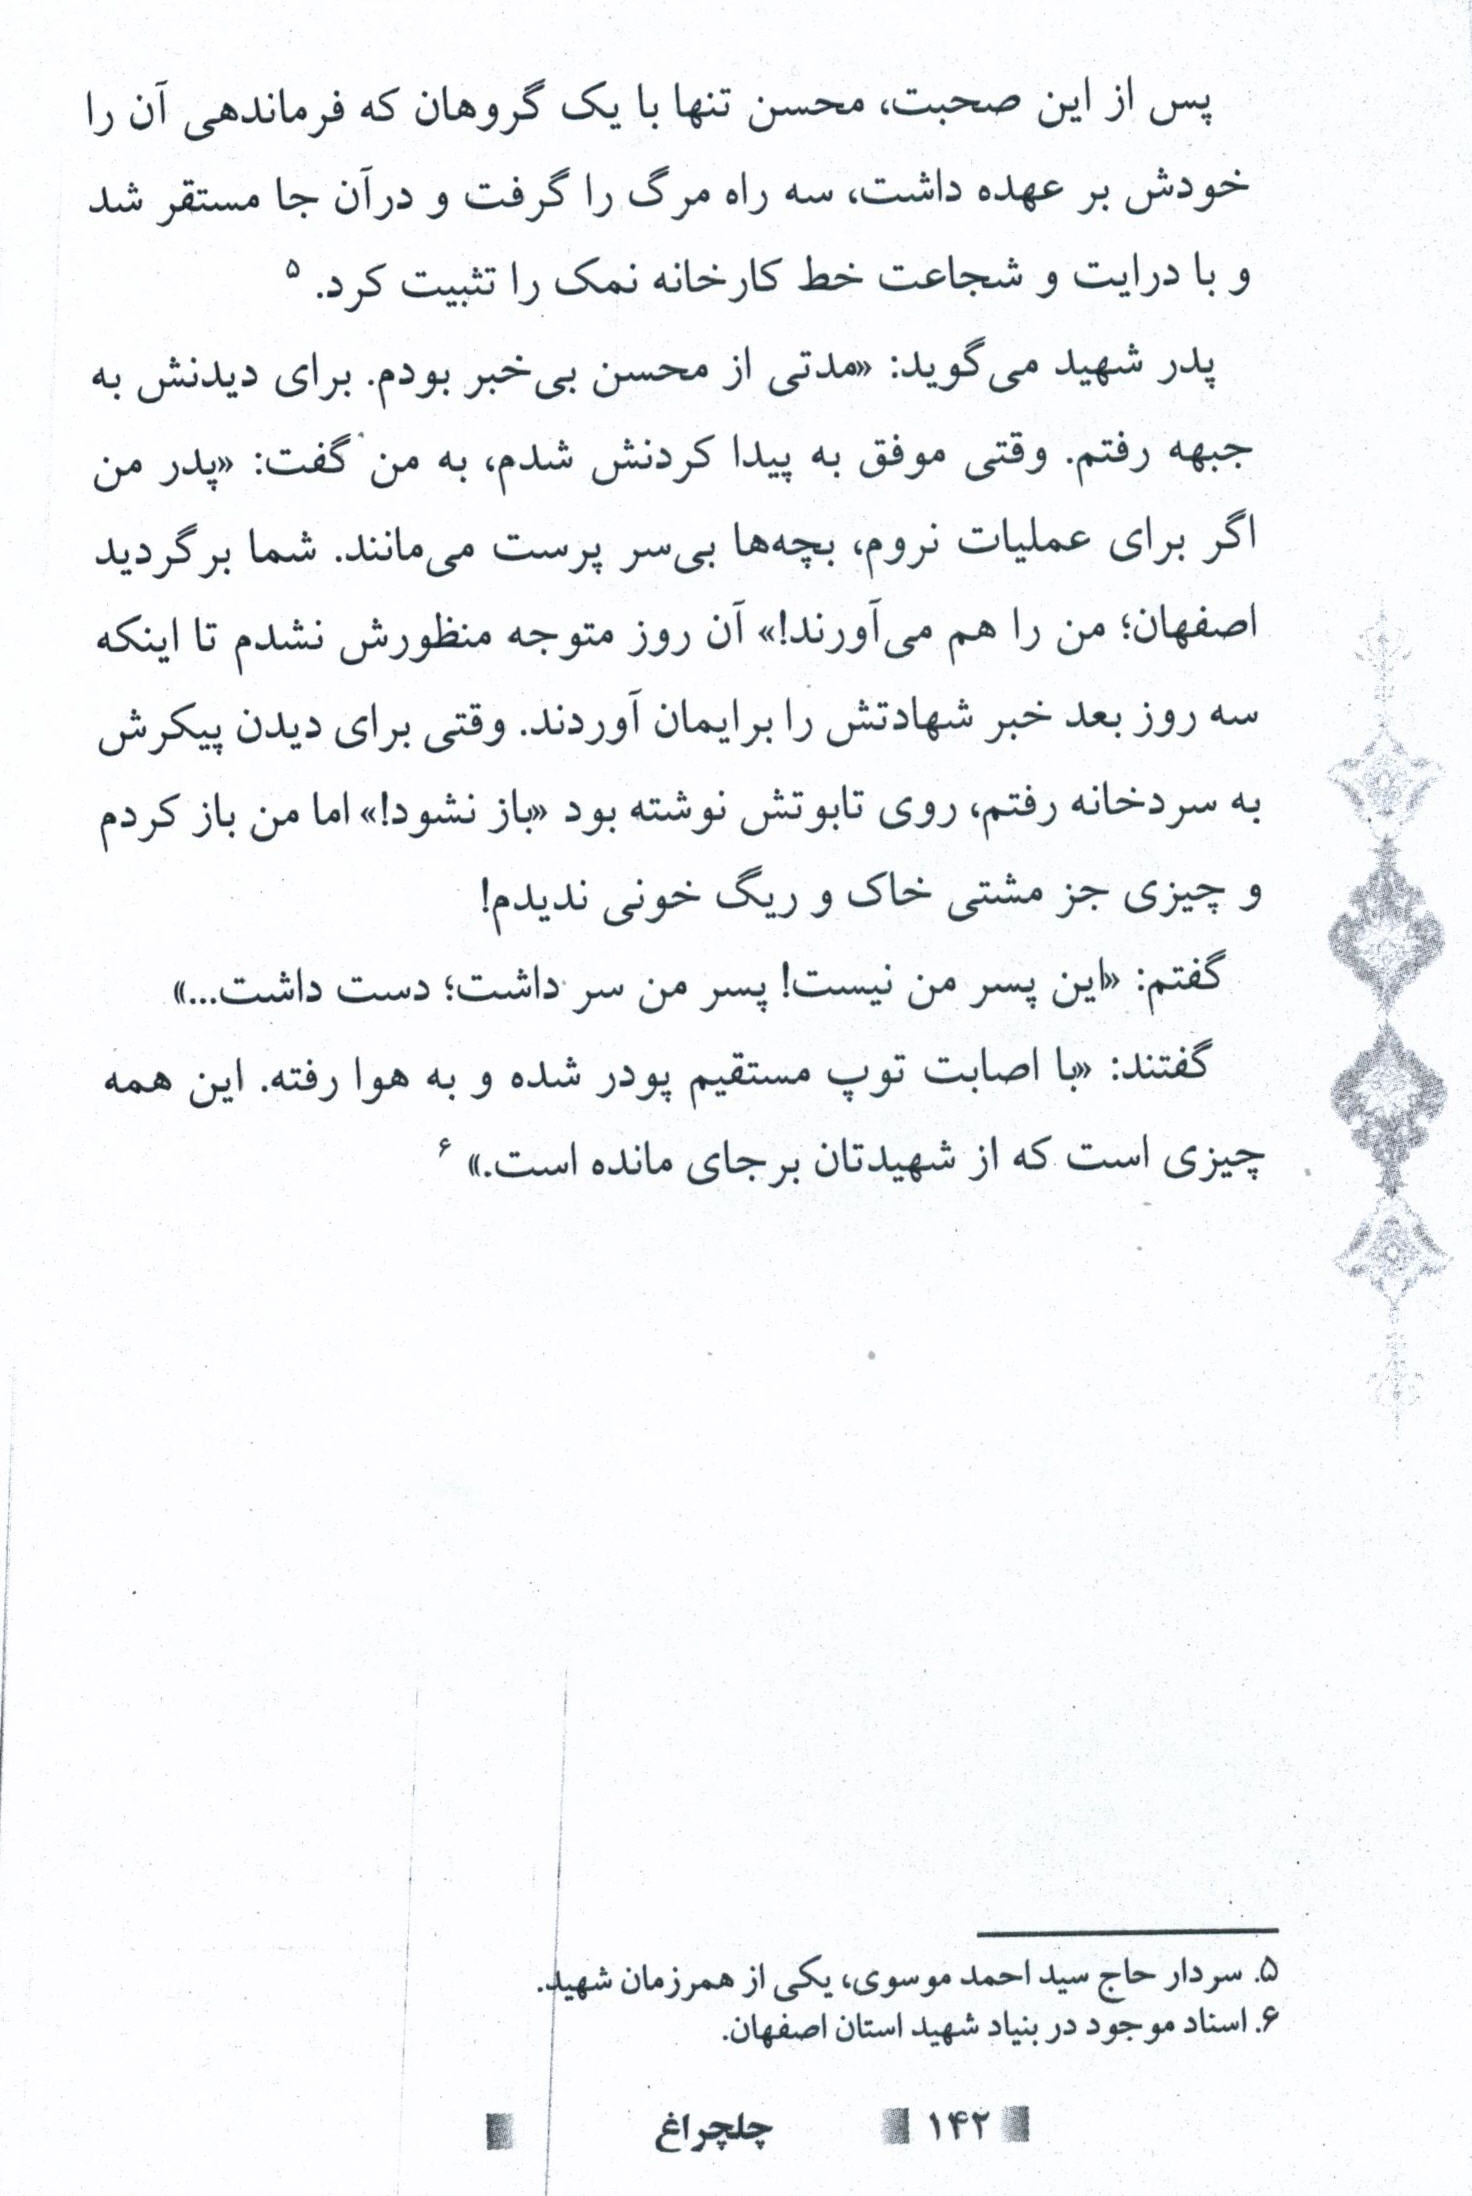 پس از این صحبت، محسن تنها با یک گروهان که فرماندهی آن را
خودش بر عهده داشت، سه راه مرگ را گرفت و درآن جا مستقر شد
و با درایت و شجاعت خط کارخانه نمک را تثبیت کرد. ۵
پدر شهید می‌گوید: «مدتی از محسن بی‌خبر بودم. برای دیدنش به
جبهه رفتم. وقتی موفق به پیدا کردنش شدم، به من گفت: «پدر من
اگر برای عملیات نروم، بچه‌ها بی‌سر پرست می‌مانند. شما برگردید
اصفهان؛ من را هم می‌آورند!» آن روز متوجه منظورش نشدم تا اینکه
سه روز بعد خبر شهادتش را برایمان آوردند. وقتی برای دیدن پیکرش
به سردخانه رفتم، روی تابوتش نوشته بود «باز نشود!» اما من باز کردم
و چیزی جز مشتی خاک و ریگ خونی ندیدم!
گفتم: «این پسر من نیست! پسر من سر داشت؛ دست داشت...»
گفتند: «با اصابت توپ مستقیم پودر شده و به هوا رفته. این همه
چیزی است که از شهیدتان برجای مانده است.» ۶
۵. سردار حاج سید احمد موسوی، یکی از همرزمان شهید.
۶. اسناد موجود در بنیاد شهید استان اصفهان.
۱۴۲ چلچراغ